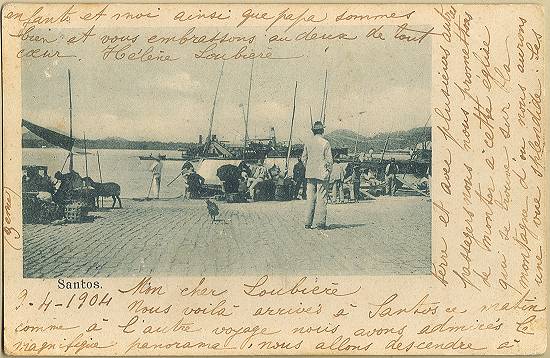 Santos.
3-4-1904 Mon cher Loubière
Nous voilà arrivés à Santos ce matin
comme à l'autre voyage nous avons admirés le
magnifique panorama, nous allons descendre à
terre et avec plusieurs autres
passagers nous nous promettons
de monter à cette église
qui se trouve sur la
montagne d'ou nous aurons
une vue splendide. Les
enfants et moi ainsi que papa sommes
bien et vous embrassons au deux de tout
cœur. Hélène Loubière